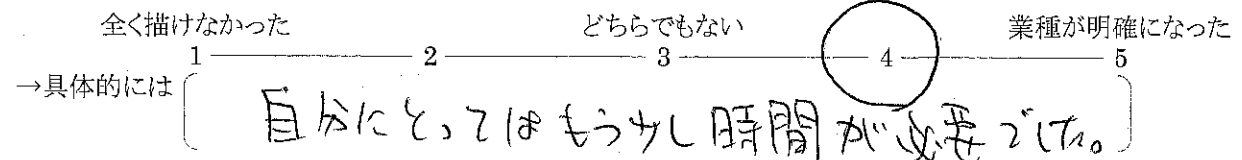 全く描けなかった どちらでもない 業種が明確になった
1 2 3 4 5
→具体的には
自分にとってはもう少し時間が必要でした。